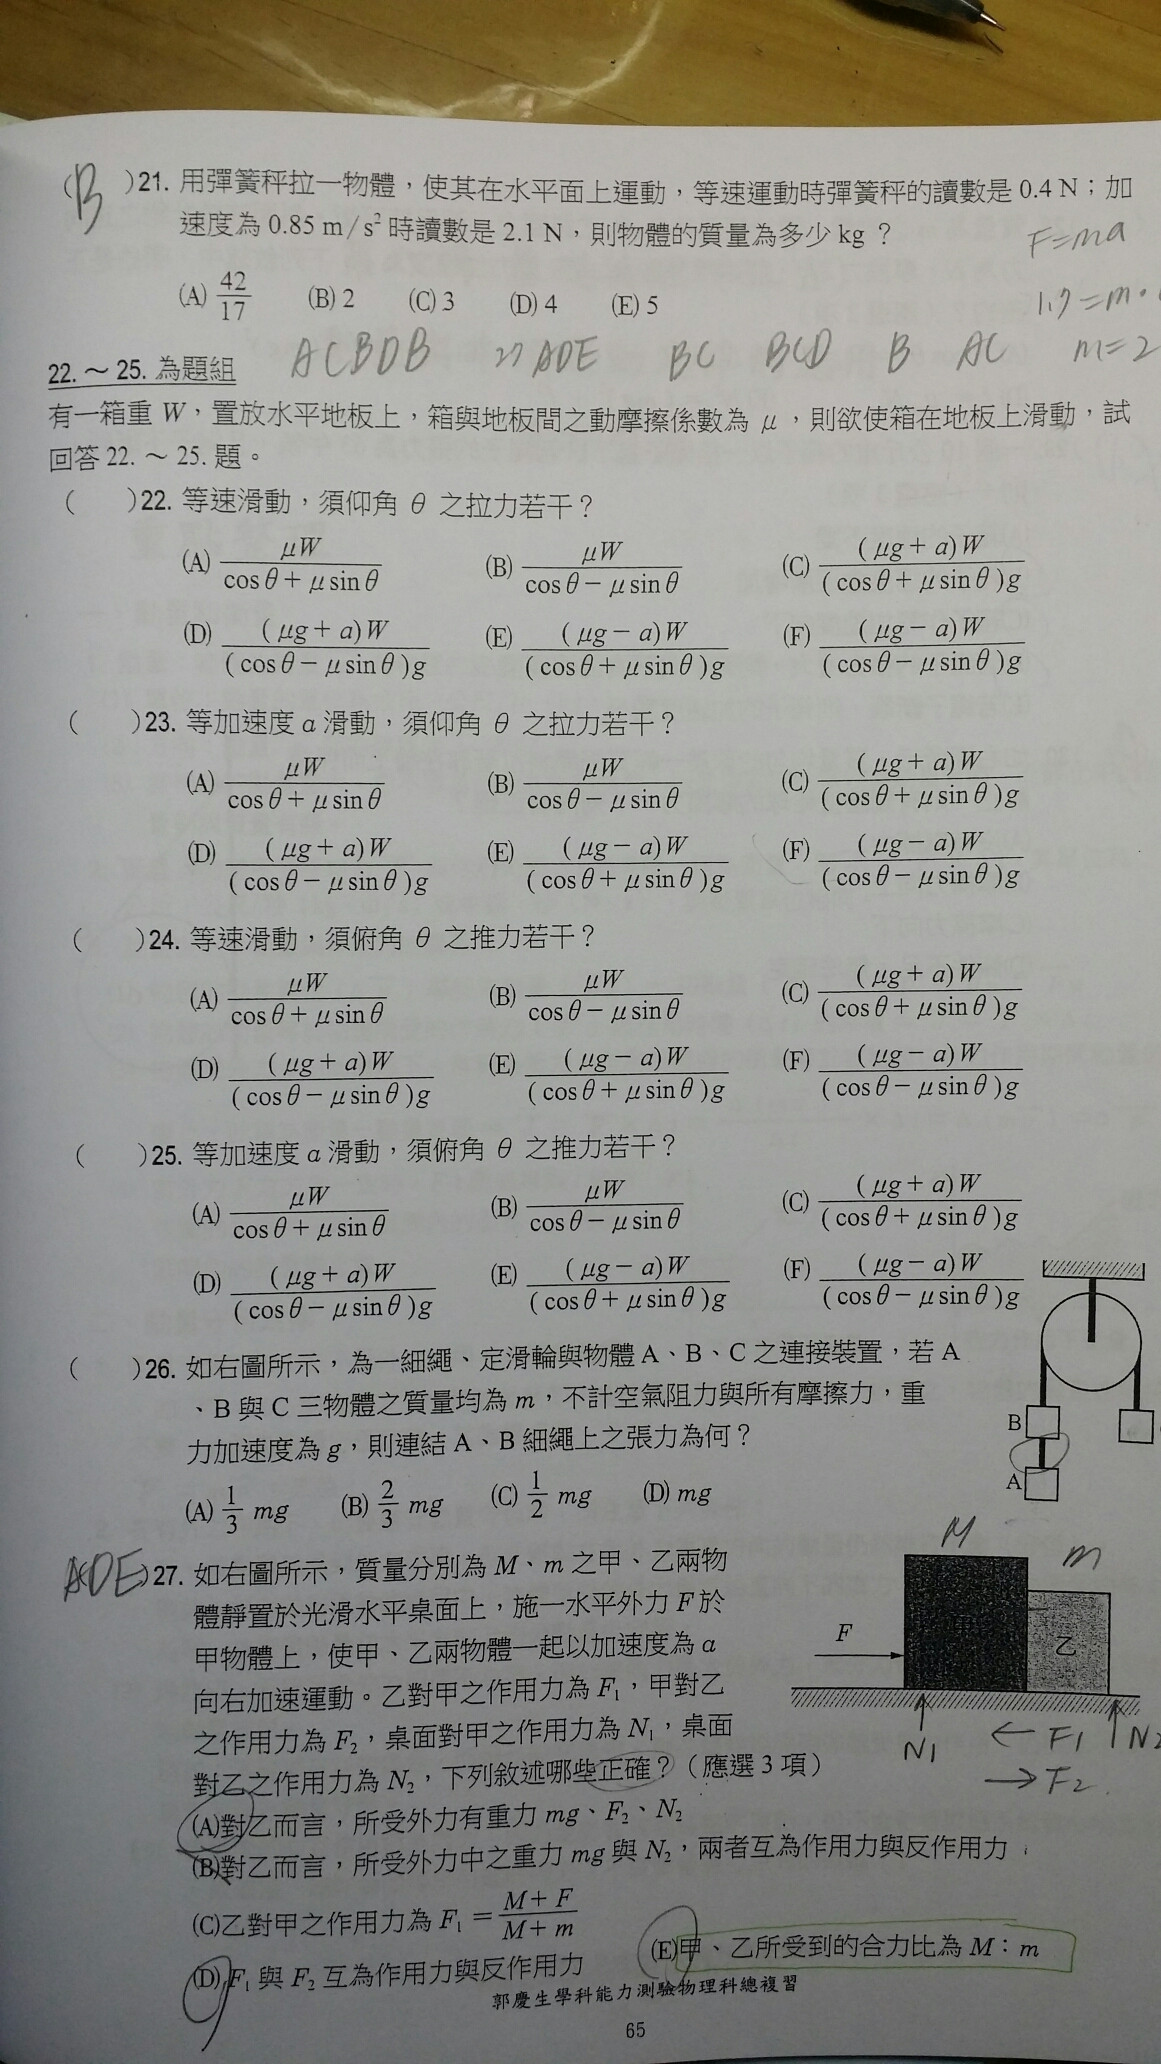 (B)21. 用彈簧秤拉一物體，使其在水平面上運動，等速運動時彈簧秤的讀數是 0.4 N；加
速度為 0.85 m/s² 時讀數是 2.1 N，則物體的質量為多少 kg？
F=ma
(A) 42/17 (B) 2 (C) 3 (D) 4 (E) 5
1.7=m·
22.～25. 為題組 ACBDB 27 ADE BC BCD B AC m=2
有一箱重 W，置放水平地板上，箱與地板間之動摩擦係數為 μ，則欲使箱在地板上滑動，試
回答 22.～25. 題。
( )22. 等速滑動，須仰角 θ 之拉力若干？
(A) μW/(cosθ+μsinθ) (B) μW/(cosθ−μsinθ) (C) (μg+a)W/(cosθ+μsinθ)g
(D) (μg+a)W/(cosθ−μsinθ)g (E) (μg−a)W/(cosθ+μsinθ)g (F) (μg−a)W/(cosθ−μsinθ)g
( )23. 等加速度 a 滑動，須仰角 θ 之拉力若干？
(A) μW/(cosθ+μsinθ) (B) μW/(cosθ−μsinθ) (C) (μg+a)W/(cosθ+μsinθ)g
(D) (μg+a)W/(cosθ−μsinθ)g (E) (μg−a)W/(cosθ+μsinθ)g (F) (μg−a)W/(cosθ−μsinθ)g
( )24. 等速滑動，須俯角 θ 之推力若干？
(A) μW/(cosθ+μsinθ) (B) μW/(cosθ−μsinθ) (C) (μg+a)W/(cosθ+μsinθ)g
(D) (μg+a)W/(cosθ−μsinθ)g (E) (μg−a)W/(cosθ+μsinθ)g (F) (μg−a)W/(cosθ−μsinθ)g
( )25. 等加速度 a 滑動，須俯角 θ 之推力若干？
(A) μW/(cosθ+μsinθ) (B) μW/(cosθ−μsinθ) (C) (μg+a)W/(cosθ+μsinθ)g
(D) (μg+a)W/(cosθ−μsinθ)g (E) (μg−a)W/(cosθ+μsinθ)g (F) (μg−a)W/(cosθ−μsinθ)g
( )26. 如右圖所示，為一細繩、定滑輪與物體 A、B、C 之連接裝置，若 A
、B 與 C 三物體之質量均為 m，不計空氣阻力與所有摩擦力，重
力加速度為 g，則連結 A、B 細繩上之張力為何？
(A) 1/3 mg (B) 2/3 mg (C) 1/2 mg (D) mg
B
A
(ADE)27. 如右圖所示，質量分別為 M、m 之甲、乙兩物
體靜置於光滑水平桌面上，施一水平外力 F 於
甲物體上，使甲、乙兩物體一起以加速度為 a
向右加速運動。乙對甲之作用力為 F₁，甲對乙
之作用力為 F₂，桌面對甲之作用力為 N₁，桌面
對乙之作用力為 N₂，下列敘述哪些正確？（應選 3 項）
M
m
F
甲
乙
N1
F1
N2
F2
(A)對乙而言，所受外力有重力 mg、F₂、N₂
(B)對乙而言，所受外力中之重力 mg 與 N₂，兩者互為作用力與反作用力
(C)乙對甲之作用力為 F₁ = (M+F)/(M+m)
(D) F₁ 與 F₂ 互為作用力與反作用力 (E)甲、乙所受到的合力比為 M：m
郭慶生學科能力測驗物理科總複習
65